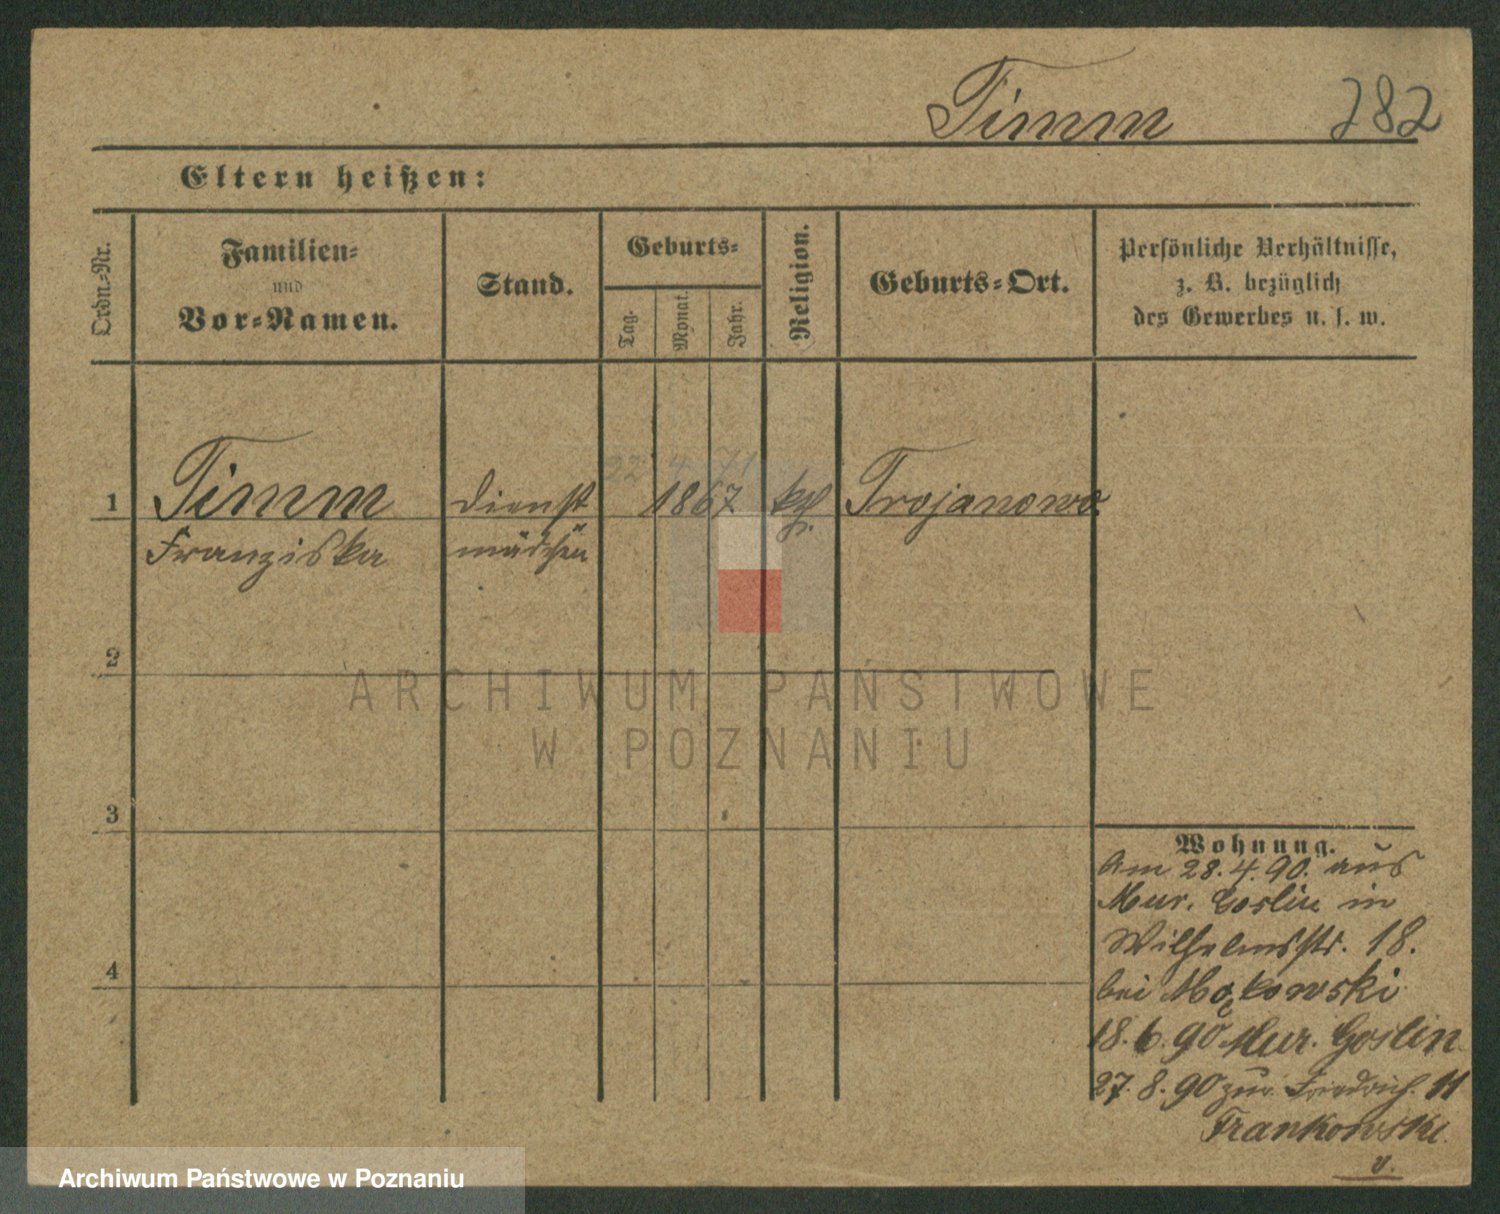 Timm 282
Eltern heißen:
Ordn.-Nr.
Familien-
und
Vor-Namen.
Stand.
Geburts-
Tag.
Monat.
Jahr.
Religion.
Geburts-Ort.
Persönliche Verhältnisse,
z. B. bezüglich
des Gewerbes u. s. w.
22 4 71
1 Timm Dienst 1867 kth. Trojanowo
Franziska mädchen
2
3
4
Wohnung.
Am 28.4.90. aus
Mur. Goslin in
Wilhelmsstr. 18.
bei Mąkowski
18.6.90 Mur. Goslin
27.8.90 zur Friedrich. 11
Frankowski
v.
ARCHIWUM PAŃSTWOWE
W POZNANIU
Archiwum Państwowe w Poznaniu